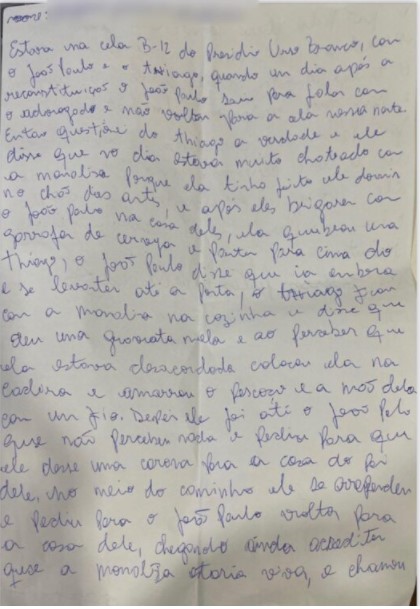 Estava na cela B-12 do Presidio Urso Branco, com
o João Paulo e o thiago, quando um dia após a
reconstituição o João Paulo saiu para falar com
o advogado e não voltou para a ala nessa noite
Entao questione do thiago a verdade e ele
disse que no dia estava muito chateado com
a monaliza porque ela tinha feito ele dormir
no chão das artes, e após eles brigarem com
o João Paulo na casa deles, ela quebrou uma
garrafa de cerveja e partiu para cima do
thiago, o João Paulo disse que ia embora
e se levantou até a porta, o thiago ficou
com a monaliza na cozinha e disse que
deu uma gravata nela e ao perceber que
ela estava desacordada colocou ela na
cadeira e amarrou o pescoço e a mão dela
com um fio. Depois ele foi até o João Paulo
que não percebeu nada e pediu para que
ele desse uma carona para a casa do pai
dele, no meio do caminho ele se arrependeu
e pediu para o João Paulo voltar para
a casa dele, chegando ainda acreditou
que a monaliza estaria viva, e chamou